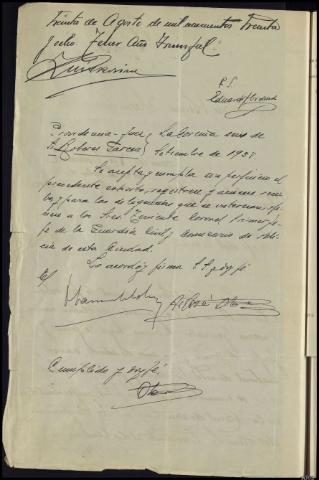 Treinta de Agosto de mil novecientos Treinta
y ocho. Tercer Año Triunfal.
P.S.
Eduardo
Providencia-Juez La Coruña uno de
Sr. García Setiembre de 1938
Se acepta y cumpla sin perjuicio el
precedente exhorto, regístrese y acúsese reci-
bo, y para las diligencias que se interesan, ofí-
ciese a los Sres Teniente Coronel, Primer Je-
fe de la Guardia Civil y Comisario de Poli-
cía de esta Ciudad.
Lo acordó y firma S.S. doy fé.
E/
Cumplido y doy fé.